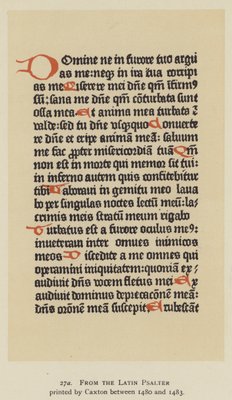 Domine ne in furore tuo argui
as me: neqȝ in ira tua corripi
as me Miserere mei dñe qm̄ ifirm9
sū: sana me dñe qm̄ cōturbata sunt
ossa mea Et anima mea turbata ē
valde: sed tu dñe vsqȝquo Conuerte
re dñe et eripe animā meā: saluum
me fac ꝓpter misericordiā tuā Qm̄
non est in morte qui memor sit tui:
in inferno autem quis confitebitur
tibi Laboraui in gemitu meo laua
bo ꝑ singulas noctes lectū meū: la-
crimis meis stratū meum rigabo
Turbatus est a furore oculus me9:
inueteraui inter omnes inimicos
meos Discedite a me omnes qui
operamini iniquitatem: quoniā ex-
audiuit dñs vocem fletus mei Ex
audiuit dominus deprecacōnē meā:
dñs orōnē meā suscepit Erubescāt
27a. FROM THE LATIN PSALTER
printed by Caxton between 1480 and 1483.